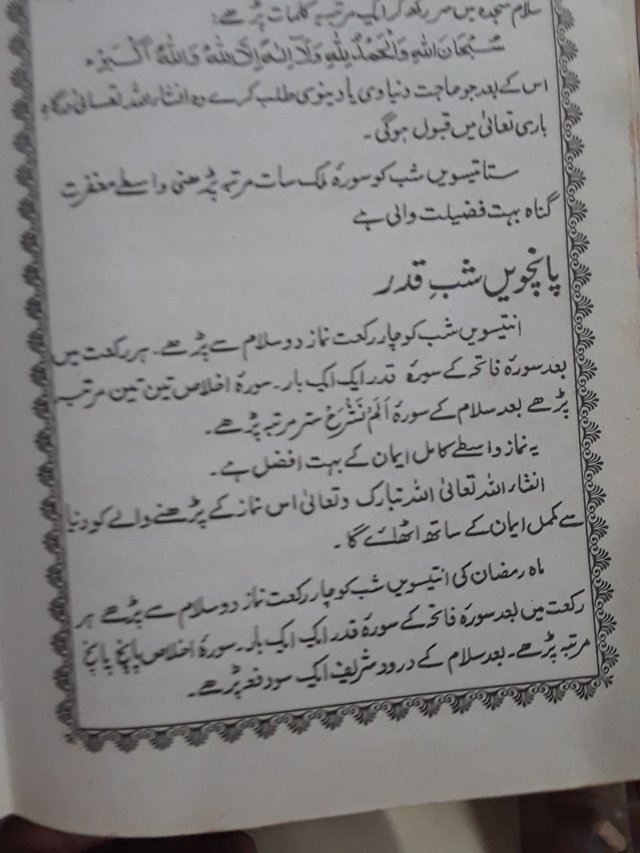 سلام سجدہ میں سر رکھ کر ایک مرتبہ کلمات پڑھے:
سُبْحَانَ اللّٰہِ وَالْحَمْدُ لِلّٰہِ وَلَآ اِلٰہَ اِلَّا اللّٰہُ وَاللّٰہُ اَکْبَرُ ہ
اس کے بعد جو حاجت دنیاوی یا دینوی طلب کرے وہ انشاء اللہ تعالیٰ درگاہِ
باری تعالیٰ میں قبول ہوگی ۔
ستائیسویں شب کو سورۂ ملک سات مرتبہ پڑھنی واسطے مغفرت
گناہ بہت فضیلت والی ہے
پانچویں شبِ قدر
انتیسویں شب کو چار رکعت نماز دو سلام سے پڑھے ۔ ہر رکعت میں
بعد سورۂ فاتحہ کے سورہ قدر ایک ایک بار ۔ سورۂ اخلاص تین تین مرتبہ
پڑھے بعد سلام کے سورۂ اَلَمْ نَشْرَحْ ستر مرتبہ پڑھے ۔
یہ نماز واسطے کامل ایمان کے بہت افضل ہے ۔
انشاء اللہ تعالیٰ اللہ تبارک وتعالیٰ اس نماز کے پڑھنے والے کو دنیا
سے مکمل ایمان کے ساتھ اٹھائے گا ۔
ماہ رمضان کی انتیسویں شب کو چار رکعت نماز دو سلام سے پڑھے ہر
رکعت میں بعد سورۂ فاتحہ کے سورۂ قدر ایک ایک بار ۔ سورۂ اخلاص پانچ پانچ
مرتبہ پڑھے ۔ بعد سلام کے درود شریف ایک سو دفعہ پڑھے ۔